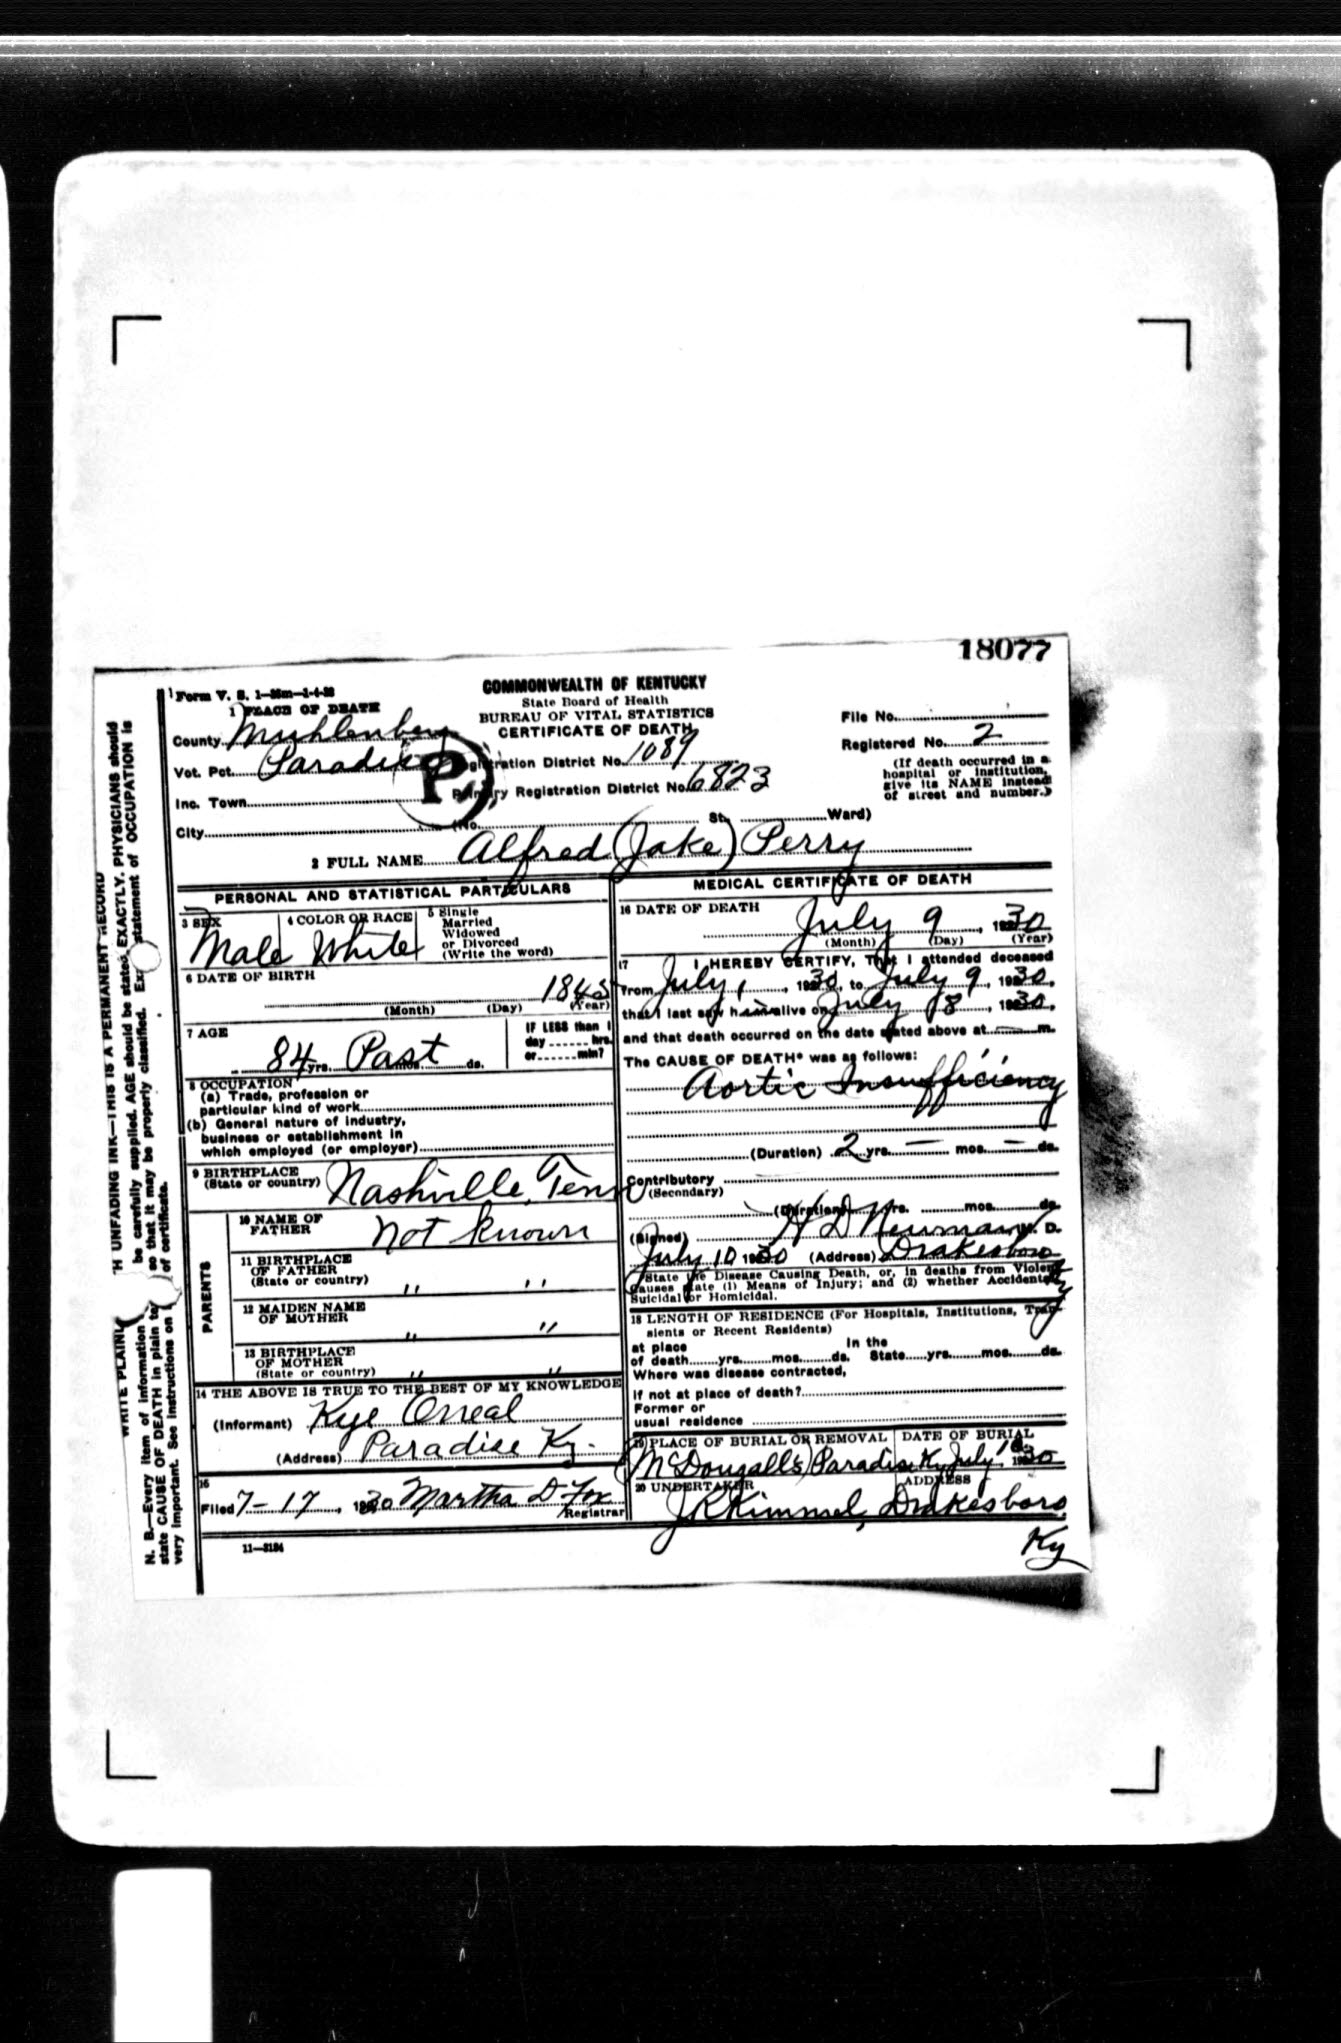 18077
Form V. S. 1—
COMMONWEALTH OF KENTUCKY
State Board of Health
BUREAU OF VITAL STATISTICS
CERTIFICATE OF DEATH
1 PLACE OF DEATH
County Muhlenberg
Vot. Pct. Paradise
Inc. Town
City
P
Registration District No. 1089
Primary Registration District No. 6823
(No. St. Ward)
File No.
Registered No. 2
(If death occurred in a
hospital or institution,
give its NAME instead
of street and number.)
2 FULL NAME Alfred (Jake) Perry
PERSONAL AND STATISTICAL PARTICULARS
3 SEX
Male
4 COLOR OR RACE
White
5 Single
Married
Widowed
or Divorced
(Write the word)
6 DATE OF BIRTH
(Month) (Day) (Year)
7 AGE
84 yrs. Past mos. ds.
IF LESS than 1
day hrs.
or min?
8 OCCUPATION
(a) Trade, profession or
particular kind of work
(b) General nature of industry,
business or establishment in
which employed (or employer)
9 BIRTHPLACE
(State or country) Nashville, Tenn
PARENTS
10 NAME OF
FATHER not known
11 BIRTHPLACE
OF FATHER
(State or country) " "
12 MAIDEN NAME
OF MOTHER " "
13 BIRTHPLACE
OF MOTHER
(State or country) " "
14 THE ABOVE IS TRUE TO THE BEST OF MY KNOWLEDGE
(Informant) Kye Orreal
(Address) Paradise Ky.
15
Filed 7-17, 1930 Martha D Fox
Registrar
11—3184
MEDICAL CERTIFICATE OF DEATH
16 DATE OF DEATH
July 9, 1930
(Month) (Day) (Year)
17 I HEREBY CERTIFY, That I attended deceased
from July 1, 1930, to July 9, 1930,
that I last saw him alive on July 8, 1930,
and that death occurred on the date stated above at — m.
The CAUSE OF DEATH* was as follows:
Aortic Insufficiency
(Duration) 2 yrs. — mos. — ds.
Contributory
(Secondary)
(Duration) yrs. mos. ds.
(Signed) H D Newman M. D.
July 10 1930 (Address) Drakesboro
Ky
*State the Disease Causing Death, or, in deaths from Violent
Causes state (1) Means of Injury; and (2) whether Accidental,
Suicidal or Homicidal.
18 LENGTH OF RESIDENCE (For Hospitals, Institutions, Tran-
sients or Recent Residents)
at place In the
of death yrs. mos. ds. State yrs. mos. ds.
Where was disease contracted,
if not at place of death?
Former or
usual residence
19 PLACE OF BURIAL OR REMOVAL
McDougall's Paradise Ky
DATE OF BURIAL
July 10 1930
20 UNDERTAKER
J R Kimmel,
ADDRESS
Drakesboro,
Ky
WRITE PLAINL TH UNFADING INK—THIS IS A PERMANENT RECORD
N. B.—Every item of information be carefully supplied. AGE should be stated EXACTLY. PHYSICIANS should
state CAUSE OF DEATH in plain te so that it may be properly classified. Exa statement of OCCUPATION is
very important. See instructions on of certificate.